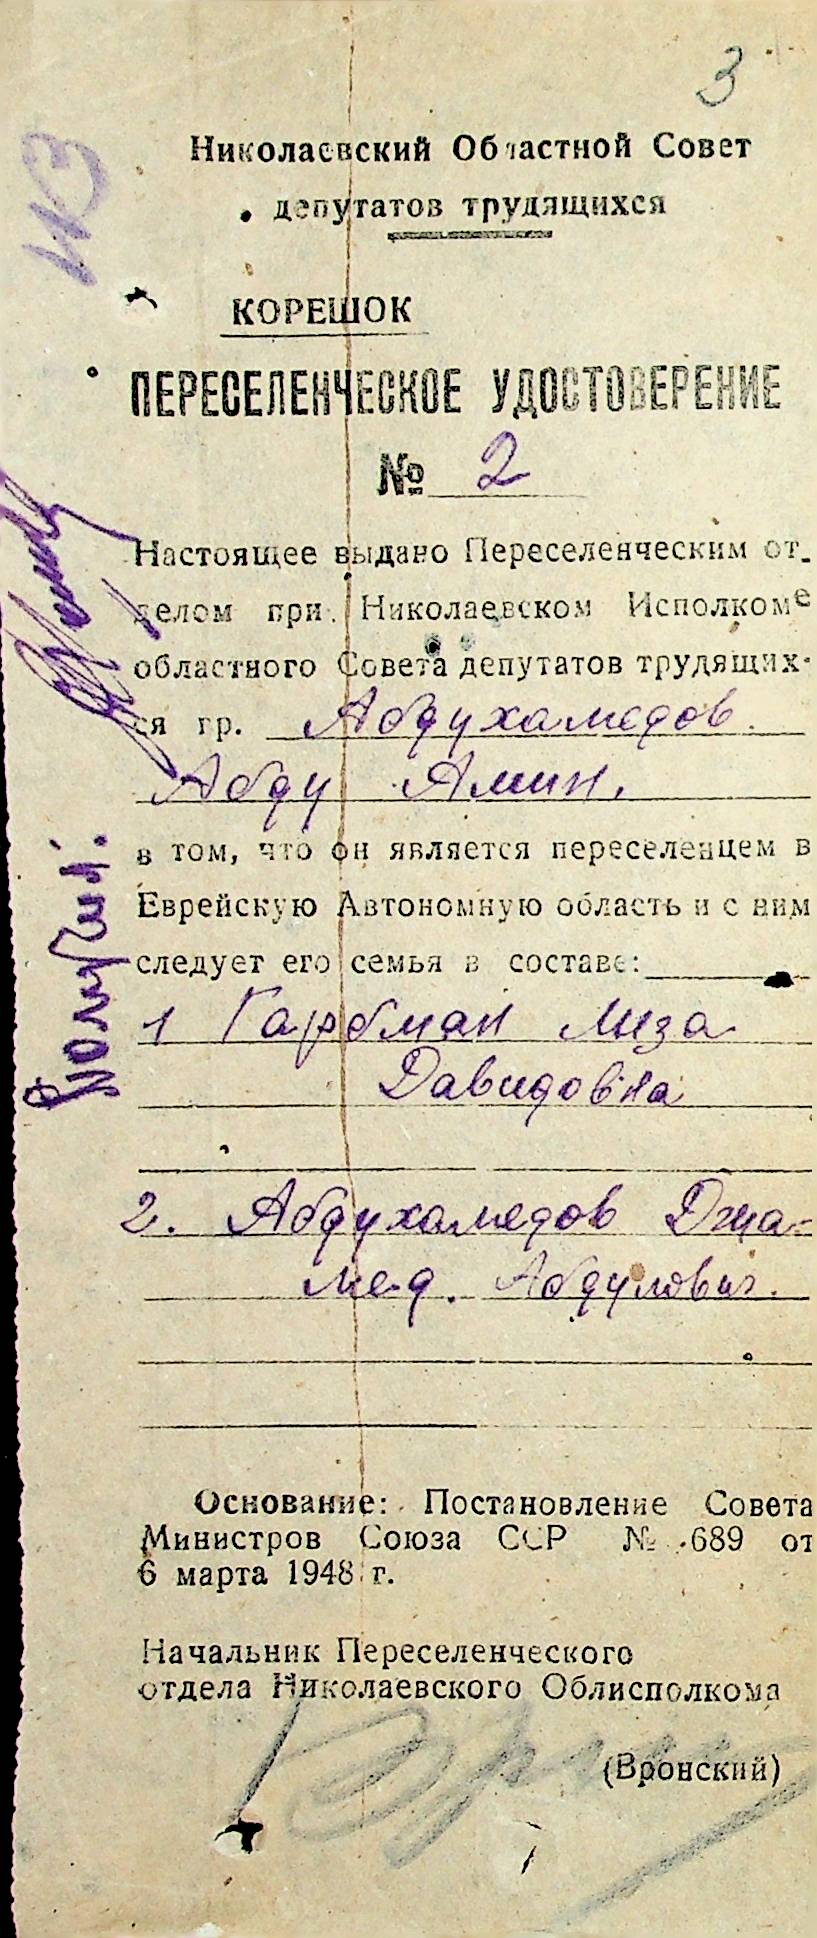 3
Николаевский Областной Совет
депутатов трудящихся
КОРЕШОК
ПЕРЕСЕЛЕНЧЕСКОЕ УДОСТОВЕРЕНИЕ
№ 2
Настоящее выдано Переселенческим от-
делом при Николаевском Исполкоме
областного Совета депутатов трудящих-
ся гр. Абдухамедов
Абду Амин.
в том, что он является переселенцем в
Еврейскую Автономную область и с ним
следует его семья в составе:
1 Гарбман Лиза
Давидовна
2. Абдухамедов Джа-
мед. Абдулович.
Основание: Постановление Совета
Министров Союза ССР № 689 от
6 марта 1948 г.
Начальник Переселенческого
отдела Николаевского Облисполкома
(Вронский)